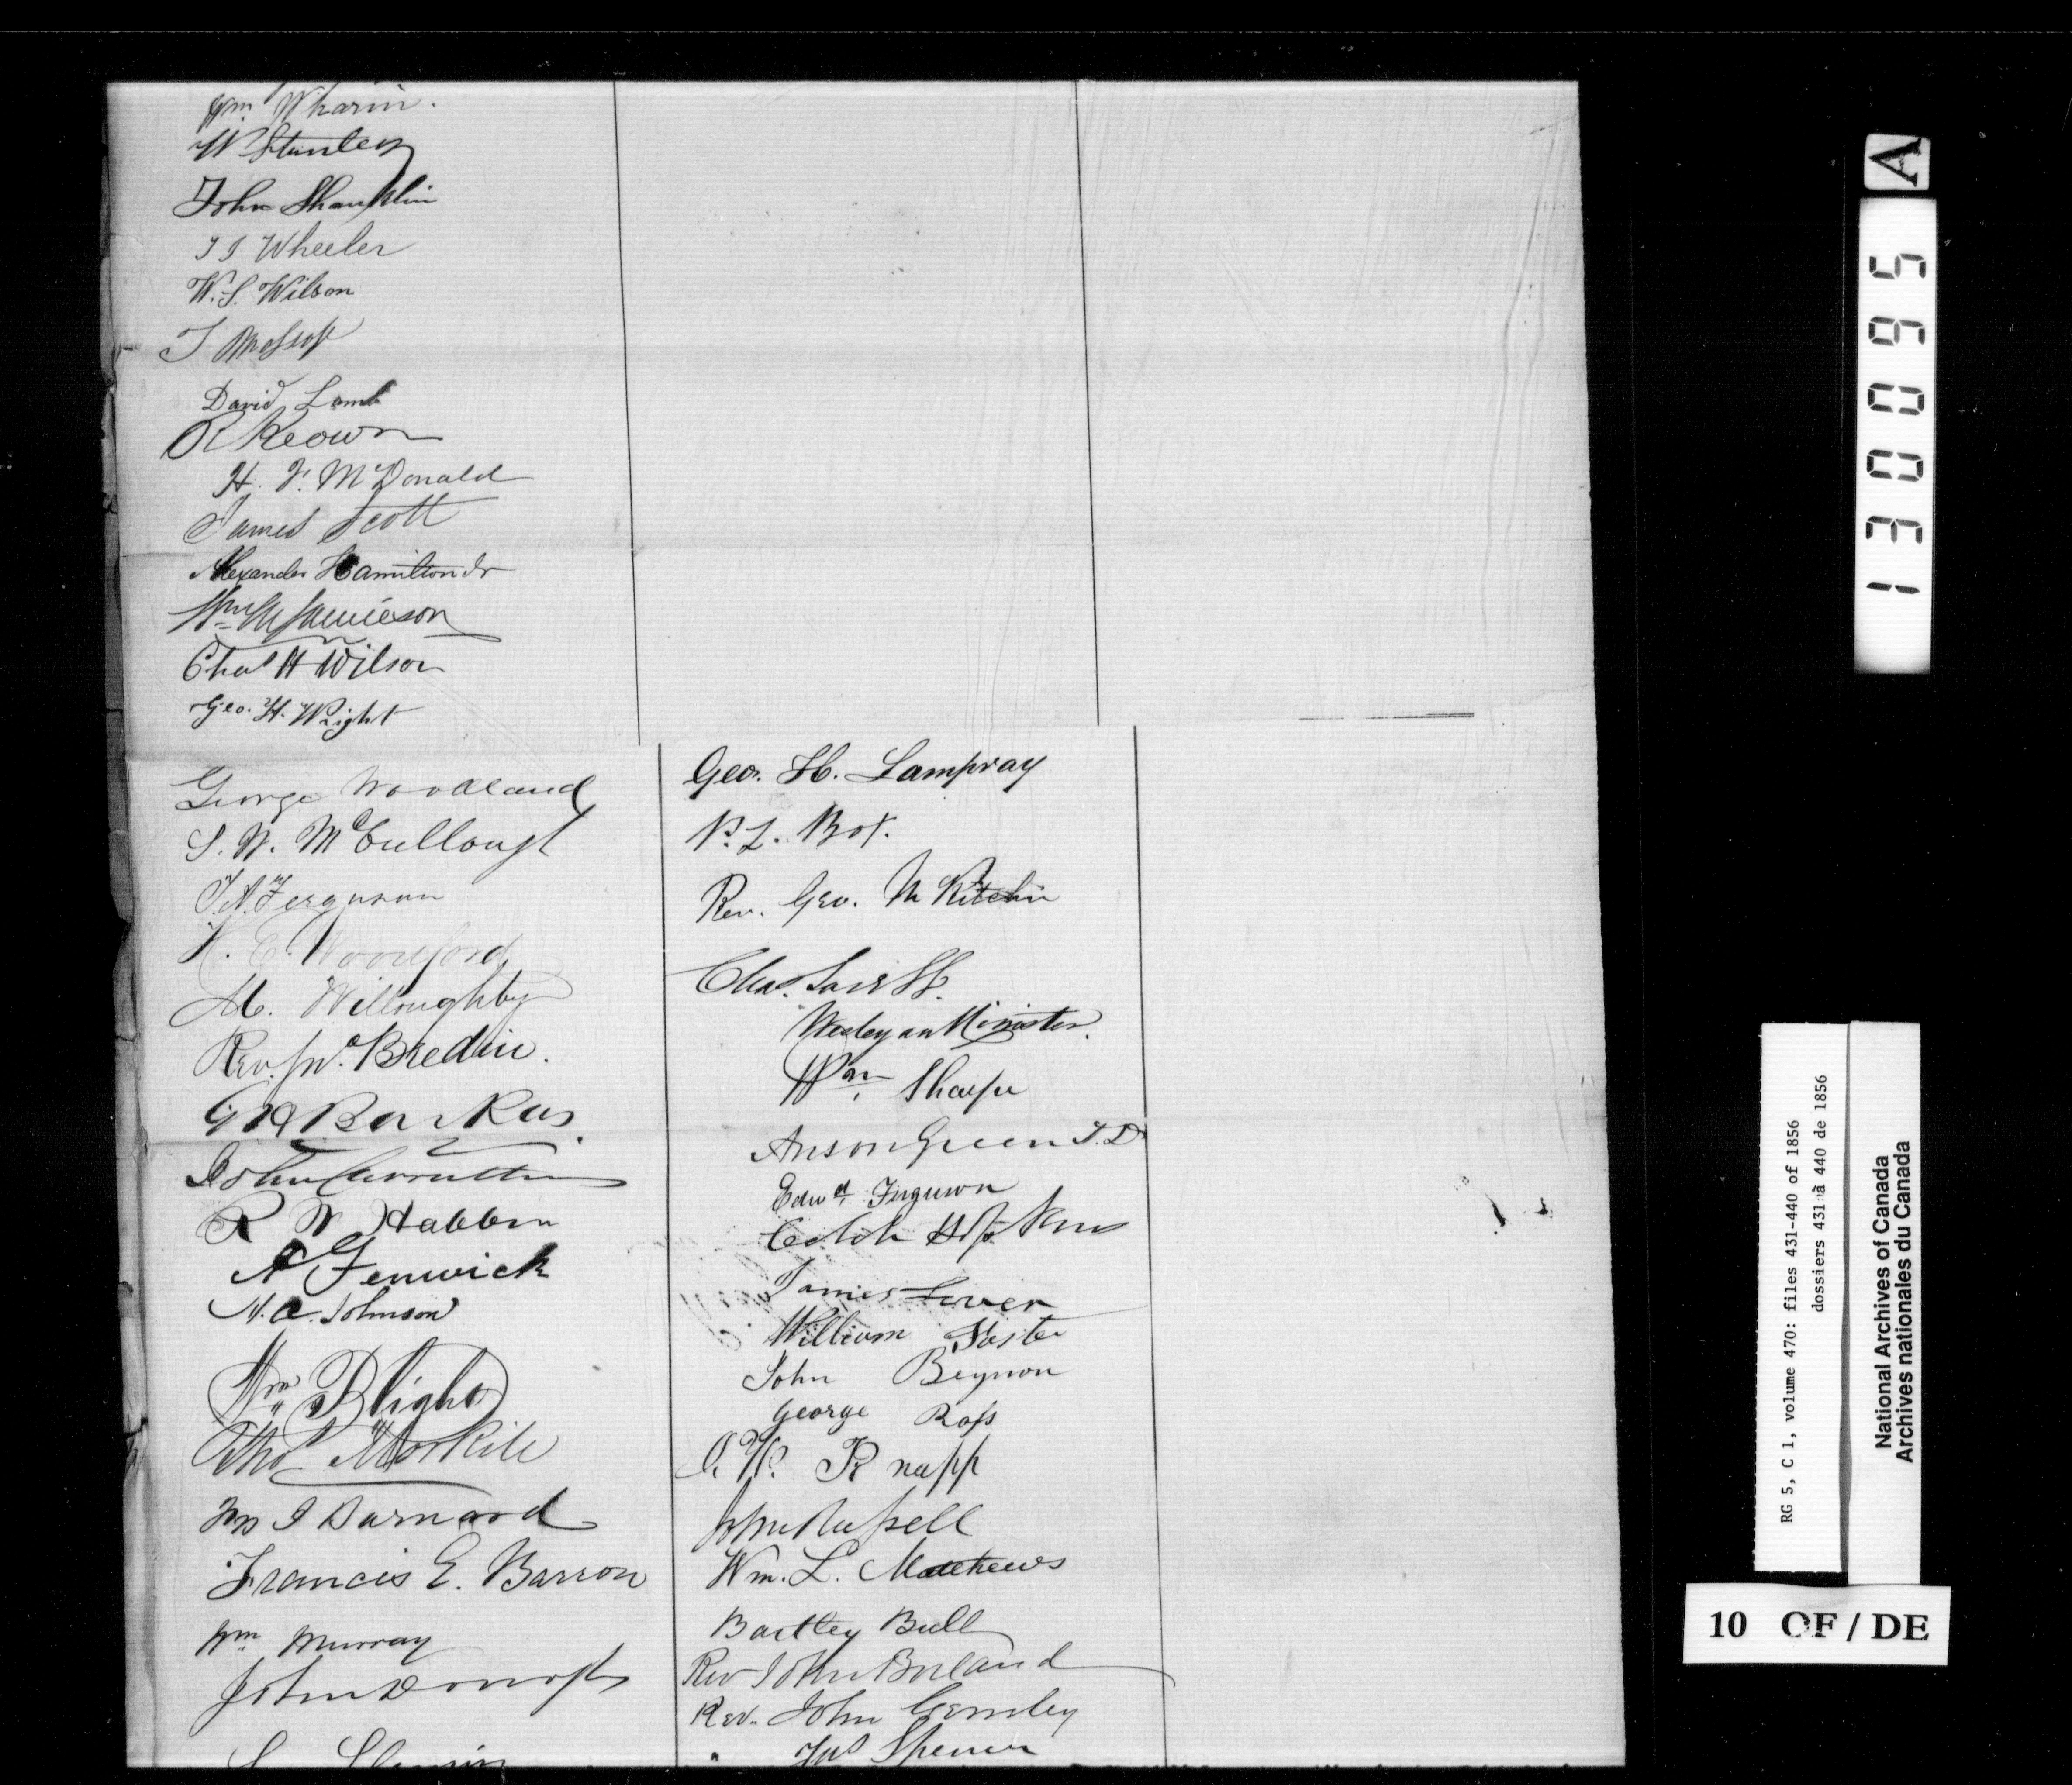 Wm. Wharin.
W Stanley
John Shanklin
T J Wheeler
W. S. Wilson
T Mossop
David Lamb
R Keown
H. F. McDonald
James Scott
Alexander Hamilton Jr
Wm Jamieson
Chas H Wilson
Geo. H. Wright
George Woodland
S. W. McCullough
Ferguson
Woodsford
M. Willoughby
Rev. Jno. Bredin.
John Carruthers
R W Habbin
A Fenwick
M. C. Johnson
Wm Blight
Thos
J Barnard
Francis E. Barron
Wm Murray
John Donogh
Geo. H. Lampray
P. L. Box.
Rev. Geo. M Kitchin
Chas.
Wesleyan Minister.
Wm Sharpe
Anson Green D.D
Edwd Ferguson
Caleb Hopkins
James Lever
William Foster
John Beynon
George Ross
O. W. Knapp
John Russell
Wm. L. Matthews
Bartley Bull
Rev John Borland
Rev. John Gemley
" Jas Spencer
130095 A
RG 5, C 1, volume 470: files 431-440 of 1856
dossiers 431 à 440 de 1856
National Archives of Canada
Archives nationales du Canada
10 OF / DE